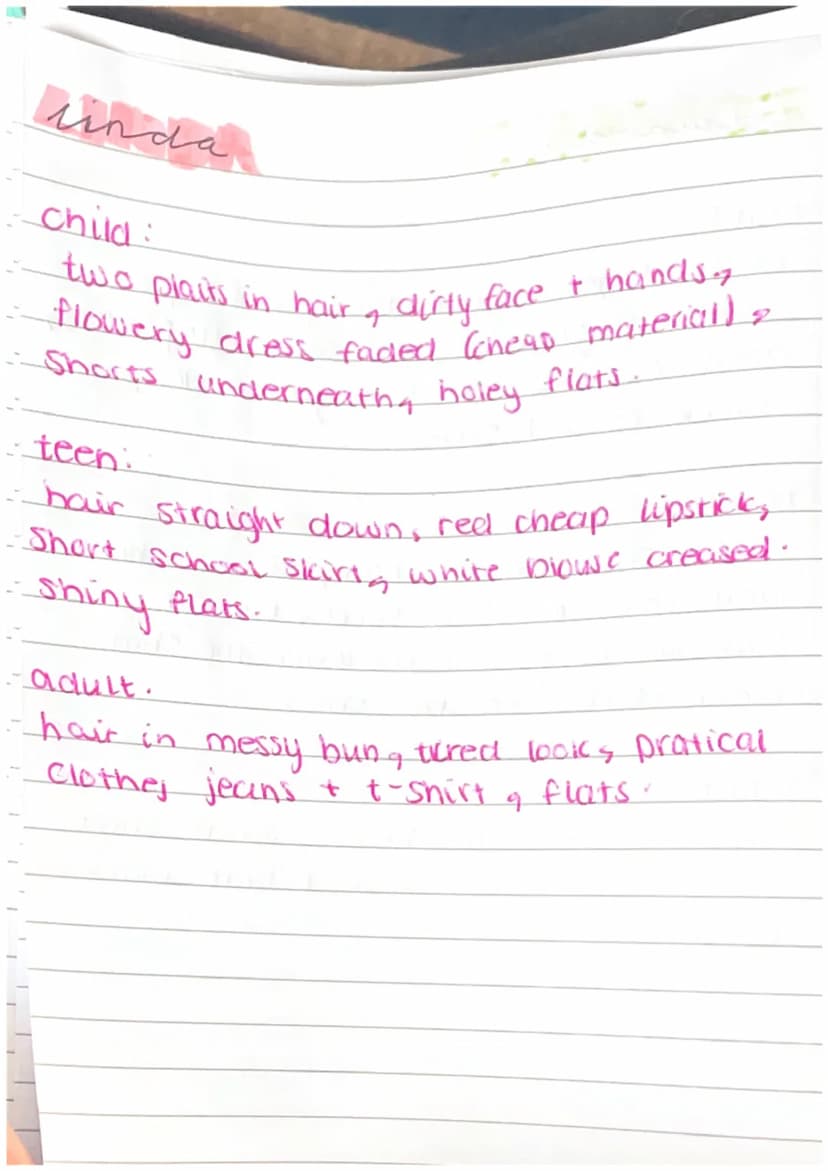 linda
child:
two plaits in hair, dirty face + hands,
flowery dress faded (cheap material),
shorts underneath, holey flats.
teen:
hair straight down, red cheap lipstick,
short school skirt, white blouse creased.
shiny flats.
adult.
hair in messy bun, tired look, pratical
clothes jeans + t-shirt, flats.